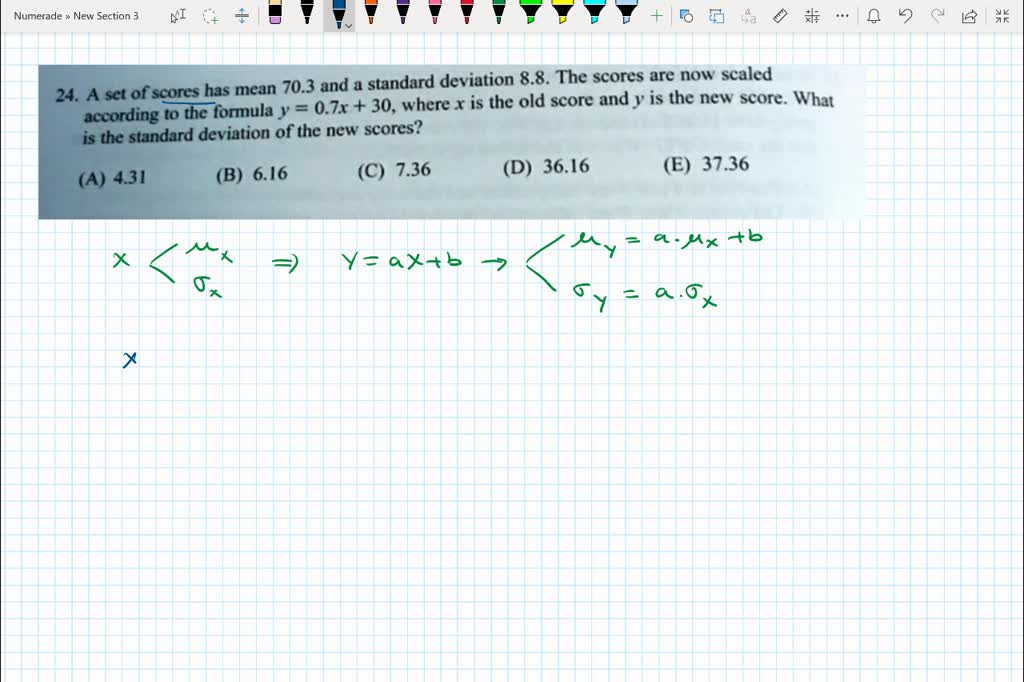 Numerade » New Section 3
24. A set of scores has mean 70.3 and a standard deviation 8.8. The scores are now scaled
according to the formula y = 0.7x + 30, where x is the old score and y is the new score. What
is the standard deviation of the new scores?
(A) 4.31 (B) 6.16 (C) 7.36 (D) 36.16 (E) 37.36
x < μx σx ⇒ Y = aX+b → < μY = a·μx +b
σY = a·σx
x